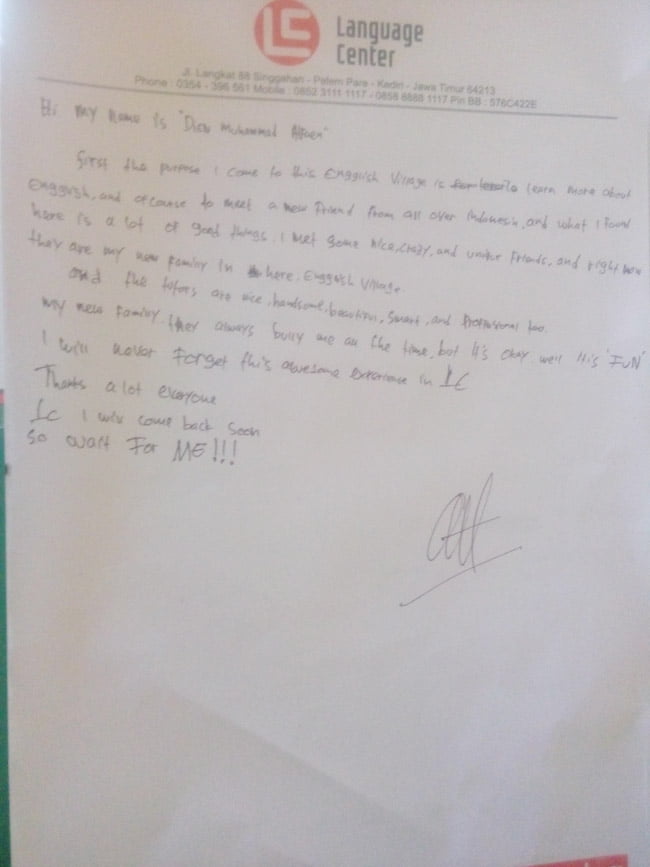 LC
Language
Center
Jl. Langkat 88 Singgahan - Palem Pare - Kediri - Jawa Timur 64213
Phone : 0354 - 396 561 Mobile : 0852 3111 1117 - 0858 6888 1117 Pin BB : 576C422E
Hi my name is "Muhammad"
First the purpose I come to this Engglish Village is learn more about
Engglish, and ofcourse to meet a new Friend From all over Indonesia, and what I found
here is a lot of good things. I met some nice, crazy, and unike Friends, and right now
they are my new Family In here, Engglish Village.
and the tutors are nice, handsome, beautiful, smart, and Proffesional too.
My new Family. they always bully me all the time, but it's okay, well it's 'FUN'
I will never Forget this awesome experience in LC
Thanks a lot everyone
LC I will come back soon
So wait For ME!!!